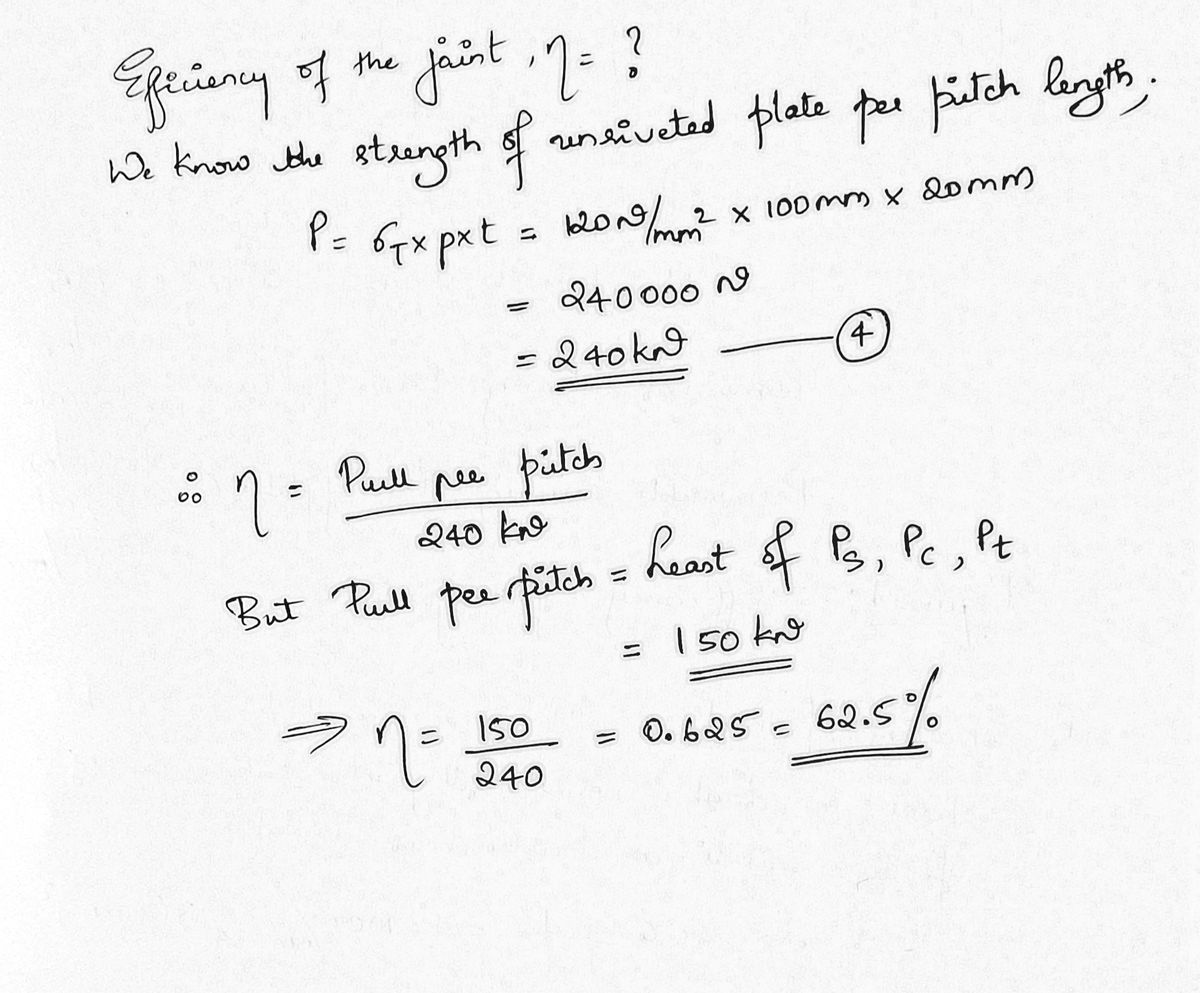 Efficiency of the joint, η = ?
We know the strength of unriveted plate per pitch length,
P = σT × p × t = 120 N/mm² × 100 mm × 20 mm
= 240000 N
= 240 kN —— ④
∴ η = Pull per pitch / 240 kN
But Pull per pitch = Least of Ps, Pc, Pt
= 150 kN
⇒ η = 150/240 = 0.625 = 62.5%